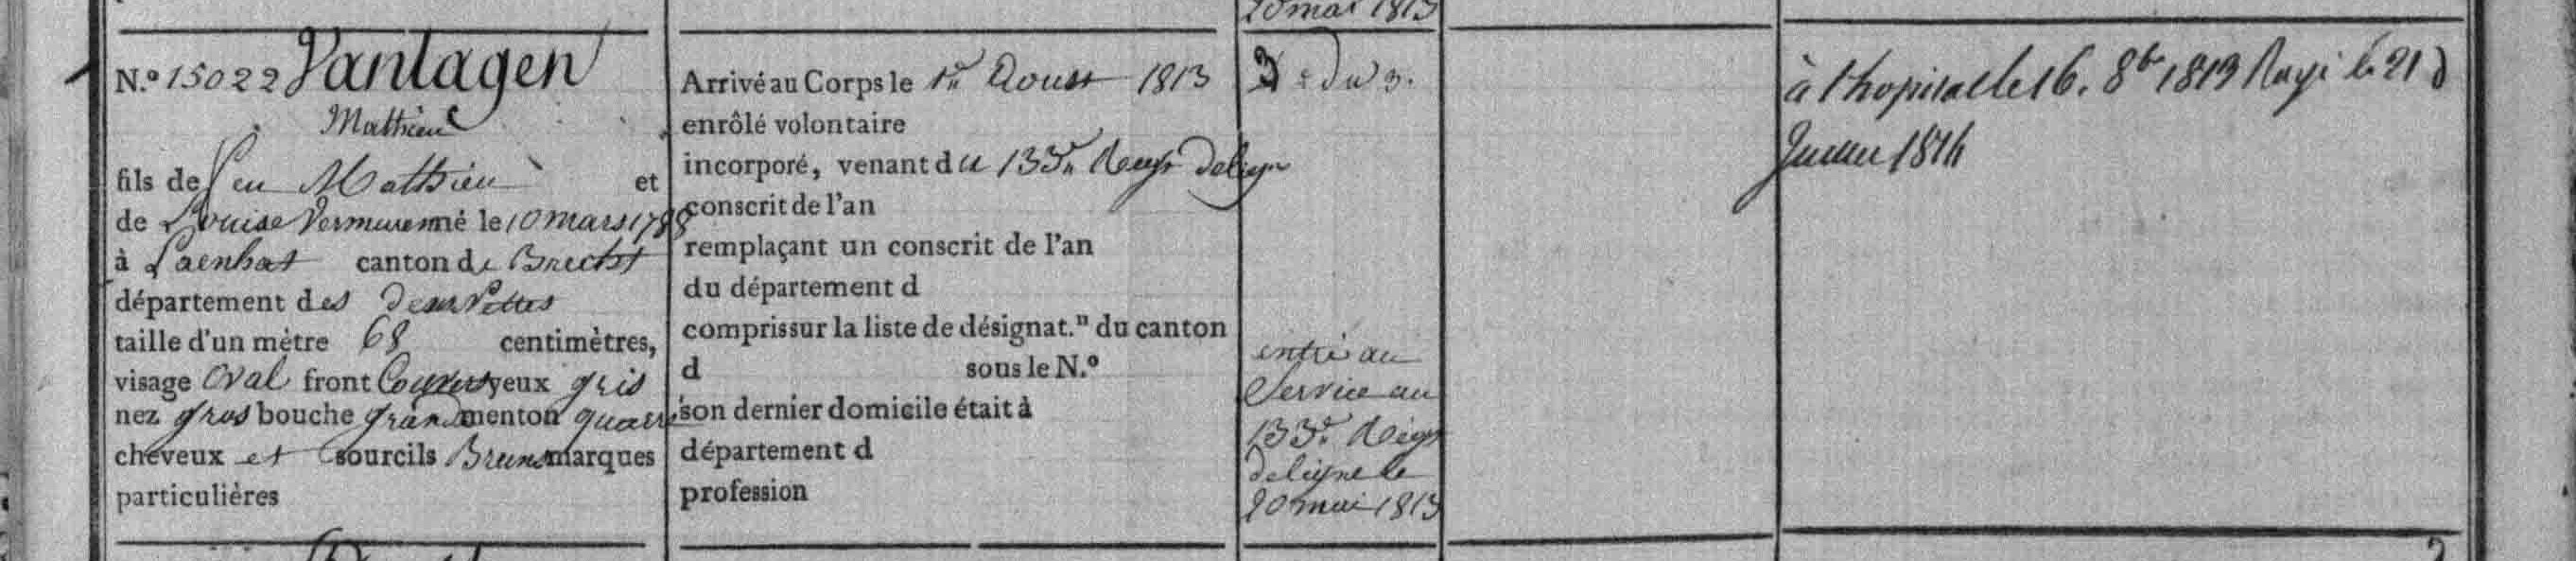 20 mai 1813
N.º 15022 Vantagen
Mathieu
fils de feu Mathieu et
de Louise Vermeuren né le 10 mars 1788
à Laenhat canton de Brecht
département des deux Nettes
taille d'un mètre 68 centimètres,
visage Oval front Couvert yeux gris
nez gros bouche grand menton quarré
cheveux et sourcils Bruns marques
particulières
Arrivé au Corps le 1er Aoust 1813
enrôlé volontaire
incorporé, venant du 133e Regt de ligne
conscrit de l'an
remplaçant un conscrit de l'an
du département d
compris sur la liste de désignat.n du canton
d sous le N.º
son dernier domicile était à
département d
profession
3 e du 3.
entré au
Service au
133e Régt
de ligne le
20 mai 1813
à l'hopital le 16. 8bre 1813 Rayé le 21
Janvier 1814